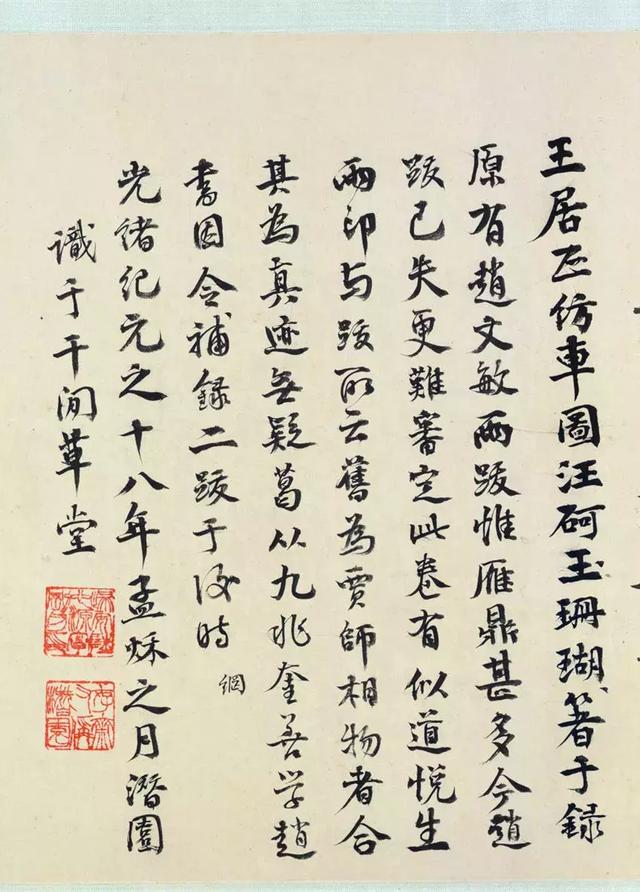 王居正紡車圖汪砢玉珊瑚箸于録
原有趙文敏兩跋惟雁鼎甚多今趙
跋已失更難審定此卷有似道悦生
兩印与跋所云舊為賈師相物者合
其為真迹無疑葛从九兆奎善学趙
書因令補録二跋于後時
網
光緒紀元之十八年孟秌之月潛園
識于千閒草堂